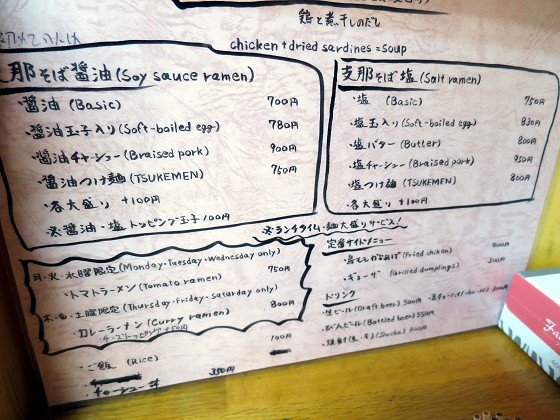 鶏と煮干しのだし
chicken + dried sardines = soup
那そば醤油 (Soy sauce ramen)
・醤油 (Basic) 700円
・醤油玉子入り (Soft-boiled egg) 780円
・醤油チャーシュー (Braised pork) 900円
・醤油つけ麺 (TSUKEMEN) 750円
・各大盛り +100円
※醤油・塩トッピング玉子100円
支那そば塩 (Salt ramen)
・塩 (Basic) 750円
・塩玉入り (Soft-boiled egg) 830円
・塩バター (Butter) 800円
・塩チャーシュー (Braised pork) 950円
・塩つけ麺 (TSUKEMEN) 800円
・各大盛り +100円
※ランチタイム・麺大盛りサービス!
月・火・水曜限定 (Monday・Tuesday・Wednesday only)
・トマトラーメン (Tomato ramen) 750円
木・金・土曜限定 (Thursday・Friday・Saturday only)
・カレーラーメン (Curry ramen) 800円
・チーズトッピング +50円
・ご飯 (Rice) 100円
・チャーシュー丼 350円
定番サイドメニュー
(Fried chicken)
・ギョーザ (Grilled dumplings)
ドリンク
・生ビール (Draft beer) 500円
・びんビール (Bottled beer) 550円